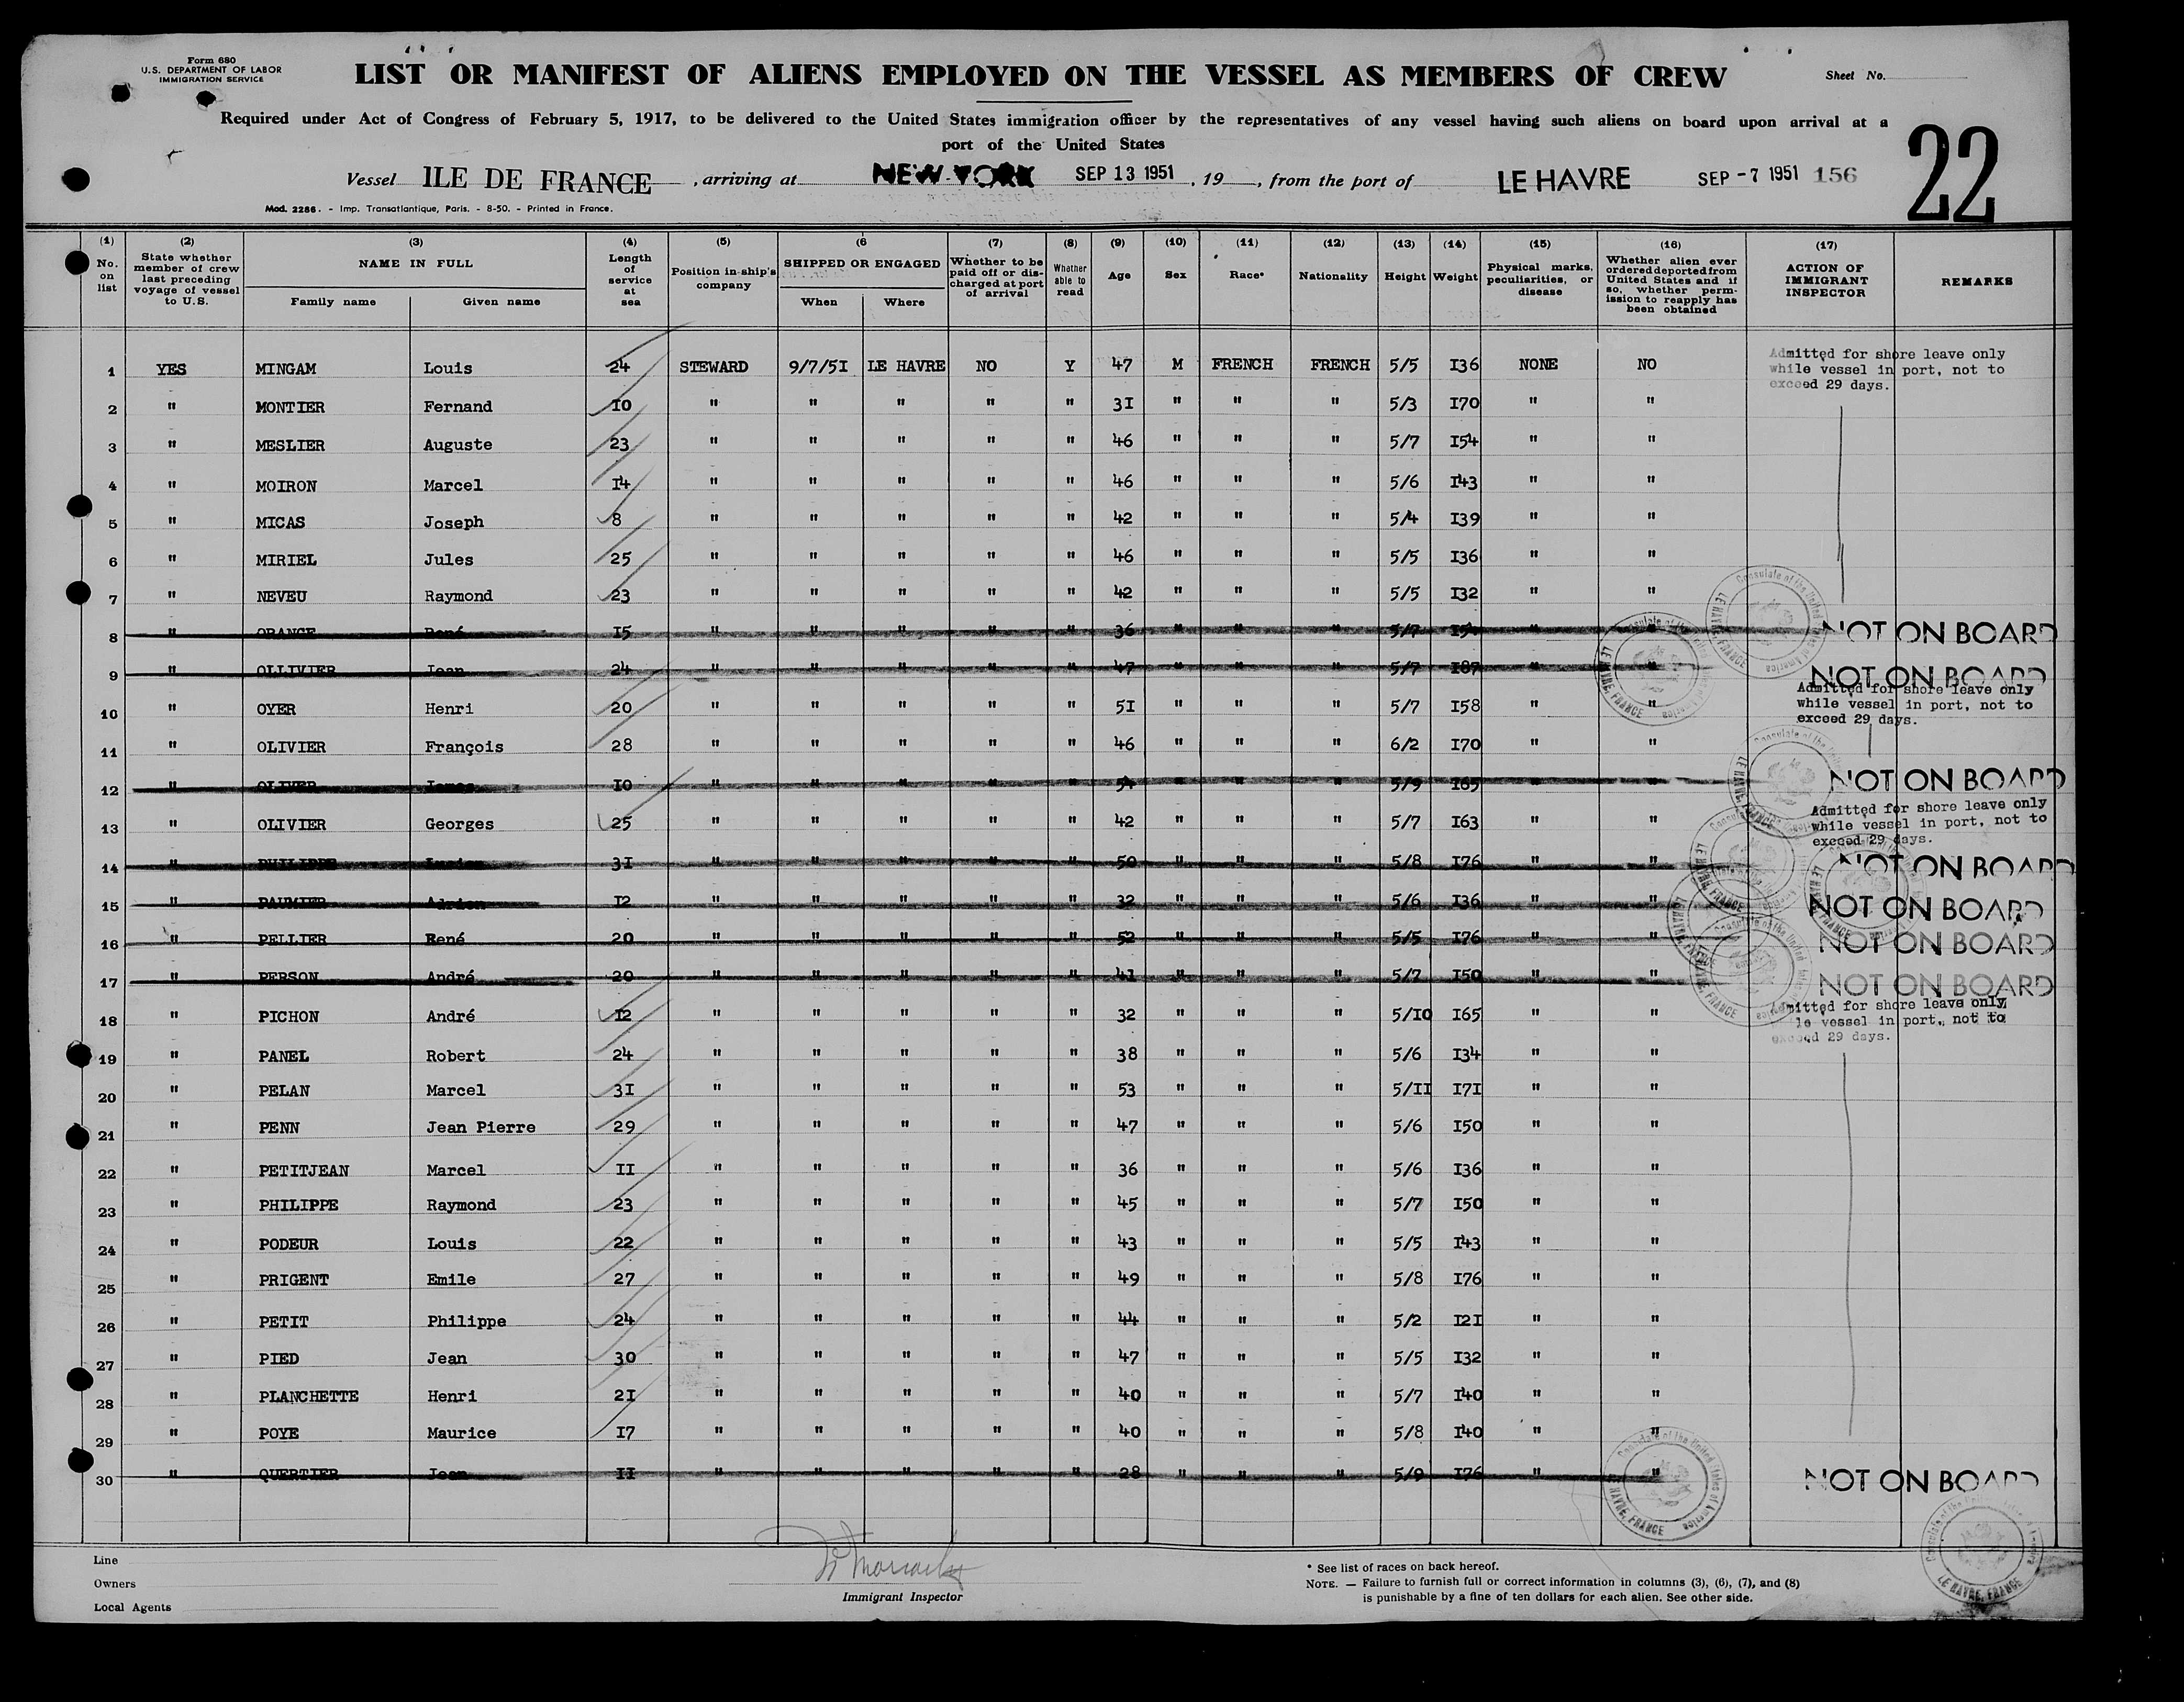 Form 680
U.S. DEPARTMENT OF LABOR
IMMIGRATION SERVICE
LIST OR MANIFEST OF ALIENS EMPLOYED ON THE VESSEL AS MEMBERS OF CREW
Sheet No.
Required under Act of Congress of February 5, 1917, to be delivered to the United States immigration officer by the representatives of any vessel having such aliens on board upon arrival at a
port of the United States
22
Vessel ILE DE FRANCE , arriving at NEW YORK SEP 13 1951 , 19 , from the port of LE HAVRE SEP -7 1951 156
Mod. 2286. - Imp. Transatlantique, Paris. - 8-50. - Printed in France.
(1) No. on list
(2) State whether member of crew last preceding voyage of vessel to U.S.
(3) NAME IN FULL Family name Given name
(4) Length of service at sea
(5) Position in ship's company
(6 SHIPPED OR ENGAGED When Where
(7) Whether to be paid off or discharged at port of arrival
(8) Whether able to read
(9) Age
(10) Sex
(11) Race*
(12) Nationality
(13) Height
(14) Weight
(15) Physical marks, peculiarities, or disease
(16) Whether alien ever ordered deported from United States and if so, whether permission to reapply has been obtained
(17) ACTION OF IMMIGRANT INSPECTOR
REMARKS
1 YES MINGAM Louis 24 STEWARD 9/7/51 LE HAVRE NO Y 47 M FRENCH FRENCH 5/5 136 NONE NO Admitted for shore leave only while vessel in port, not to exceed 29 days.
2 " MONTIER Fernand 10 " " " " " 31 " " " 5/3 170 " "
3 " MESLIER Auguste 23 " " " " " 46 " " " 5/7 154 " "
4 " MOIRON Marcel 14 " " " " " 46 " " " 5/6 143 " "
5 " MICAS Joseph 8 " " " " " 42 " " " 5/4 139 " "
6 " MIRIEL Jules 25 " " " " " 46 " " " 5/5 136 " "
7 " NEVEU Raymond 23 " " " " " 42 " " " 5/5 132 " "
8 " ORANGE René 15 " " " " " 36 " " " 5/7 154 " " NOT ON BOARD
9 " OLLIVIER Jean 24 " " " " " 47 " " " 5/7 187 " " NOT ON BOARD
10 " OYER Henri 20 " " " " " 51 " " " 5/7 158 " " Admitted for shore leave only while vessel in port, not to exceed 29 days.
11 " OLIVIER François 28 " " " " " 46 " " " 6/2 170 " "
12 " OLIVER James 10 " " " " " 54 " " " 5/9 165 " " NOT ON BOARD
13 " OLIVIER Georges 25 " " " " " 42 " " " 5/7 163 " " Admitted for shore leave only while vessel in port, not to exceed 29 days.
14 " PHILIPPE Lucien 31 " " " " " 50 " " " 5/8 176 " " NOT ON BOARD
15 " PAUMIER Adrien 12 " " " " " 32 " " " 5/6 136 " " NOT ON BOARD
16 " PELLIER René 20 " " " " " 52 " " " 5/5 176 " " NOT ON BOARD
17 " PERSON André 20 " " " " " 41 " " " 5/7 150 " " NOT ON BOARD
18 " PICHON André 12 " " " " " 32 " " " 5/10 165 " " Admitted for shore leave only le vessel in port, not to exceed 29 days.
19 " PANEL Robert 24 " " " " " 38 " " " 5/6 134 " "
20 " PELAN Marcel 31 " " " " " 53 " " " 5/11 171 " "
21 " PENN Jean Pierre 29 " " " " " 47 " " " 5/6 150 " "
22 " PETITJEAN Marcel 11 " " " " " 36 " " " 5/6 136 " "
23 " PHILIPPE Raymond 23 " " " " " 45 " " " 5/7 150 " "
24 " PODEUR Louis 22 " " " " " 43 " " " 5/5 143 " "
25 " PRIGENT Emile 27 " " " " " 49 " " " 5/8 176 " "
26 " PETIT Philippe 24 " " " " " 44 " " " 5/2 121 " "
27 " PIED Jean 30 " " " " " 47 " " " 5/5 132 " "
28 " PLANCHETTE Henri 21 " " " " " 40 " " " 5/7 140 " "
29 " POYE Maurice 17 " " " " " 40 " " " 5/8 140 " "
30 " QUERTIER Jean 11 " " " " " 28 " " " 5/9 176 " " NOT ON BOARD
Consulate of the United States of America LE HAVRE, FRANCE
Line
Owners
Local Agents
Immigrant Inspector
* See list of races on back hereof.
NOTE. — Failure to furnish full or correct information in columns (3), (6), (7), and (8)
is punishable by a fine of ten dollars for each alien. See other side.